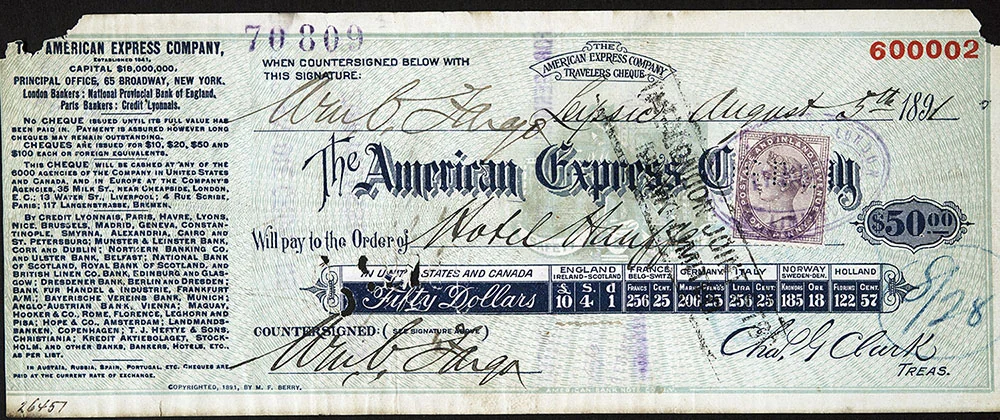 THE AMERICAN EXPRESS COMPANY,
ESTABLISHED 1841.
CAPITAL $18,000,000.
PRINCIPAL OFFICE, 65 BROADWAY, NEW YORK.
London Bankers: National Provincial Bank of England.
Paris Bankers: Credit Lyonnais.
NO CHEQUE ISSUED UNTIL ITS FULL VALUE HAS
BEEN PAID IN. PAYMENT IS ASSURED HOWEVER LONG
CHEQUES MAY REMAIN OUTSTANDING.
CHEQUES ARE ISSUED FOR $10, $20, $50 AND
$100 EACH OR FOREIGN EQUIVALENTS.
THIS CHEQUE WILL BE CASHED AT ANY OF THE
6000 AGENCIES OF THE COMPANY IN UNITED STATES
AND CANADA, AND IN EUROPE AT THE COMPANY'S
AGENCIES, 35 MILK ST., NEAR CHEAPSIDE, LONDON,
E. C.; 13 WATER ST., LIVERPOOL; 4 RUE SCRIBE,
PARIS; 117 LANGENSTRASSE, BREMEN.
BY CREDIT LYONNAIS, PARIS, HAVRE, LYONS,
NICE, BRUGES, MADRID, GENEVA, CONSTAN-
TINOPLE, SMYRNA, ALEXANDRIA, CAIRO AND
ST. PETERSBURG; MUNSTER & LEINSTER BANK,
CORK AND DUBLIN; NORTHERN BANKING CO.
AND ULSTER BANK, BELFAST; NATIONAL BANK
OF SCOTLAND, ROYAL BANK OF SCOTLAND, AND
BRITISH LINEN CO. BANK, EDINBURG AND GLAS-
GOW; DRESDENER BANK, BERLIN AND DRESDEN;
BANK FUR HANDEL & INDUSTRIE, FRANKFURT
A/M; BAYERISCHE VEREINS BANK, MUNICH;
ANGLO-AUSTRIAN BANK, VIENNA; MAQUAY,
HOOKER & CO., ROME, FLORENCE, LEGHORN AND
PISA; HOPE & CO., AMSTERDAM; LANDMANDS-
BANKEN, COPENHAGEN; T. J. HEFTYE & SONS,
CHRISTIANIA; KREDIT AKTIEBOLAGET, STOCK-
HOLM, AND OTHER BANKS, BANKERS, HOTELS, ETC.,
AS PER LIST.
IN AUSTRIA, RUSSIA, SPAIN, PORTUGAL, ETC. CHEQUES ARE
PAID AT THE CURRENT RATE OF EXCHANGE.
26451
COPYRIGHTED, 1891, BY M. F. BERRY.
70809
WHEN COUNTERSIGNED BELOW WITH
THIS SIGNATURE:
THE
AMERICAN EXPRESS COMPANY
TRAVELERS CHEQUE.
600002
Wm C. Fargo Leipsic August 5th 1891
The American Express Company
$50.00
Will pay to the Order of Hotel Hauffe
IN UNITED STATES AND CANADA ENGLAND IRELAND-SCOT'D FRANCE BELG-SWITZ. GERMANY ITALY NORWAY SWEDEN-DEN. HOLLAND
Fifty Dollars £ 10 S 4 d 1 FRANCS 256 CENT. 25 MARKS 206 PFENGS 25 FRANCS 256 CENT. 25 KRONOR 185 ORE 18 FLORINS 122 CENT. 57
COUNTERSIGNED: (SEE SIGNATURE ABOVE)
Wm C. Fargo
Chas. G Clark
TREAS.